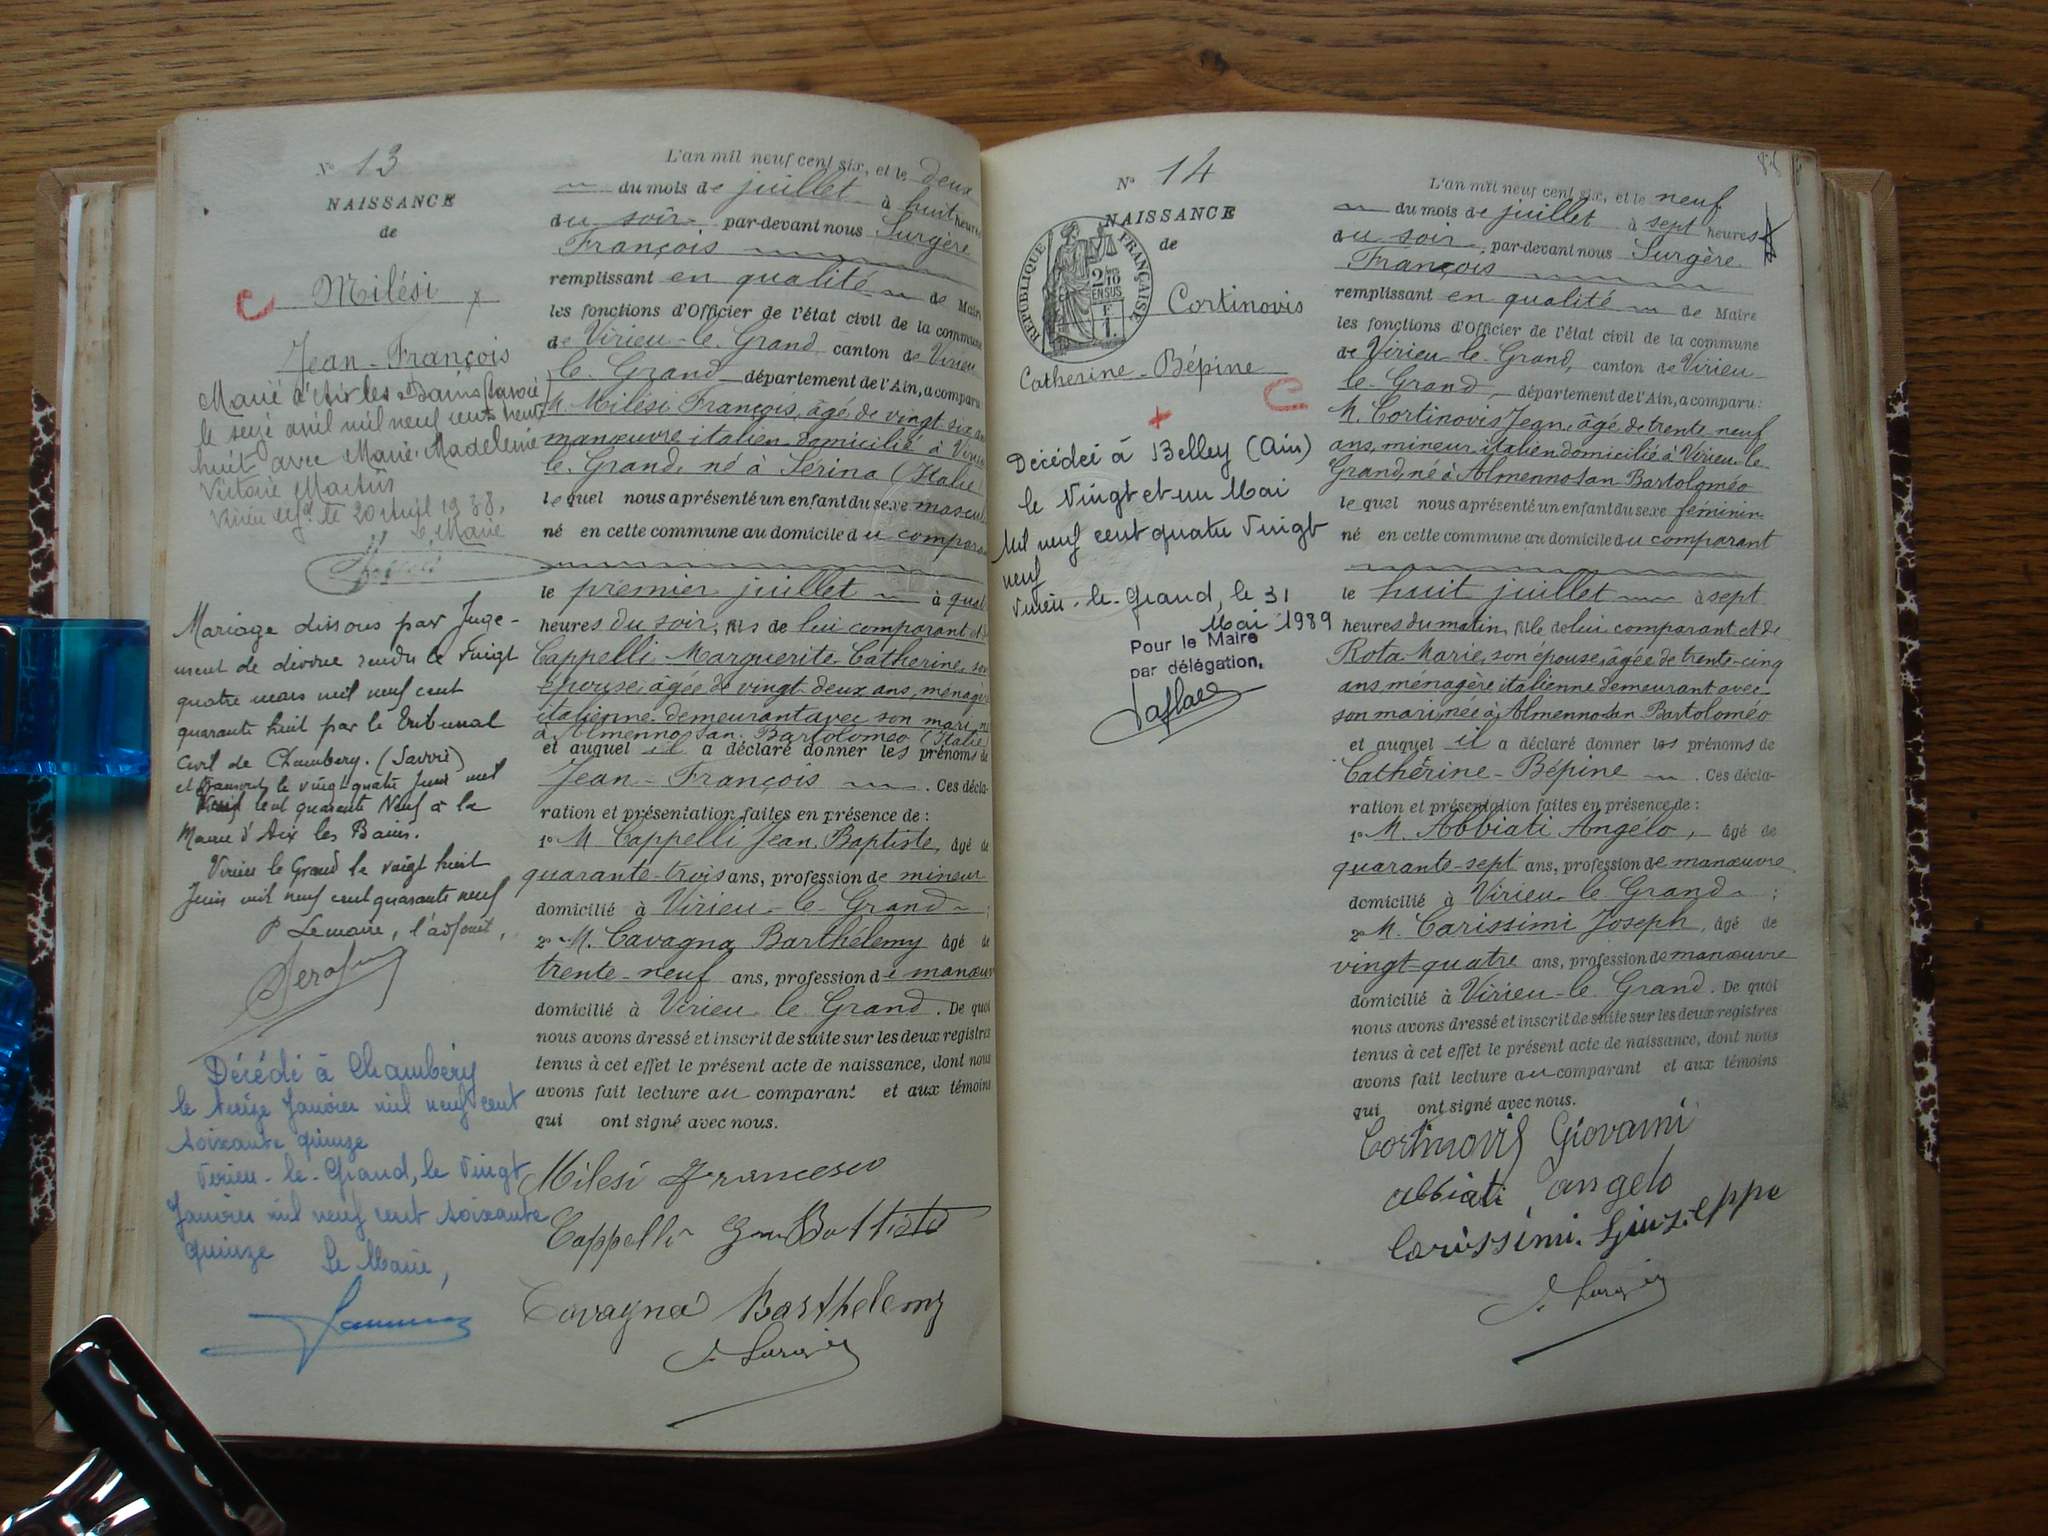 N° 13
NAISSANCE
de
Milési
Jean-François
Marié à Aix les Bains (Savoie)
le seize avril mil neuf cent trente
huit avec Marie Madeleine
Victorie Martin
Virieu le Gd le 20 avril 1938,
Le Maire
Mariage dissous par Juge-
ment de divorce rendu le vingt
quatre mars mil neuf cent
quarante huit par le tribunal
Civil de Chambéry. (Savoie)
et transcrit le vingt quatre Juin mil
neuf cent quarante Neuf à la
Mairie d'Aix les Bains.
Virieu le Grand le vingt huit
Juin mil neuf cent quarante neuf
P Lemaire, l'adjoint,
Décédé à Chambéry
le treize Janvier mil neuf cent
soixante quinze
Virieu-le-Grand, le Vingt
Janvier mil neuf cent soixante
quinze Le Maire,
L'an mil neuf cent six, et le deux
du mois de juillet à huit heures
du soir par-devant nous Surgère
François
remplissant en qualité de Maire
les fonctions d'Officier de l'état civil de la commune
de Virieu-le-Grand, canton de Virieu
le-Grand, département de l'Ain, a comparu:
M. Milési François, âgé de vingt-six ans
manœuvre italien domicilié à Virieu
le-Grand, né à Serina (Italie)
lequel nous a présenté un enfant du sexe mascul
né en cette commune au domicile du compara
le premier juillet à quat
heures du soir, fils de lui comparant et de
Cappelli Marguerite Catherine, son
épouse, âgée de vingt-deux ans, ménagère
italienne demeurant avec son mari, née
à Almenno San Bartoloméo (Italie)
et auquel il a déclaré donner les prénoms de
Jean-François . Ces décla-
ration et présentation faites en présence de:
1° M Cappelli Jean Baptiste, âgé de
quarante-trois ans, profession de mineur
domicilié à Virieu-le-Grand ;
2° M. Cavagna Barthélemy âgé de
trente-neuf ans, profession de manœuv
domicilié à Virieu le Grand. De quoi
nous avons dressé et inscrit de suite sur les deux registres
tenus à cet effet le présent acte de naissance, dont nous
avons fait lecture au comparant et aux témoins
qui ont signé avec nous.
Milesi Francesco
Cappelli Gian Battista
Cavagna Barthelemy
J. Surgère
N° 14
NAISSANCE
de
RÉPUBLIQUE FRANÇAISE
2/10 EN SUS
F 1.
Cortinovis
Catherine-Bépine
Décédée à Belley (Ain)
le Vingt et un Mai
Mil neuf cent quatre vingt
neuf
Virieu-le-Grand, le 31
Mai 1989
Pour le Maire
par délégation,
L'an mil neuf cent six, et le neuf
du mois de juillet à sept heures
du soir, par-devant nous Surgère
François
remplissant en qualité de Maire
les fonctions d'Officier de l'état civil de la commune
de Virieu-le-Grand, canton de Virieu
le-Grand, département de l'Ain, a comparu:
M. Cortinovis Jean, âgé de trente-neuf
ans, mineur italien domicilié à Virieu-le-
Grand, né à Almenno San Bartoloméo
lequel nous a présenté un enfant du sexe féminin
né en cette commune au domicile du comparant
le huit juillet à sept
heures du matin, fille de lui comparant et de
Rota Marie, son épouse, âgée de trente-cinq
ans, ménagère italienne demeurant avec
son mari, née à Almenno San Bartoloméo
et auquel il a déclaré donner les prénoms de
Cathérine-Bépine . Ces décla-
ration et présentation faites en présence de:
1° M. Abbiati Angélo, âgé de
quarante-sept ans, profession de manœuvre
domicilié à Virieu-le-Grand ;
2° M. Carissimi Joseph, âgé de
vingt-quatre ans, profession de manœuvre
domicilié à Virieu-le-Grand. De quoi
nous avons dressé et inscrit de suite sur les deux registres
tenus à cet effet le présent acte de naissance, dont nous
avons fait lecture au comparant et aux témoins
qui ont signé avec nous.
Cortinovis Giovanni
Abbiati Angelo
Carissimi Giuseppe
J. Surgère